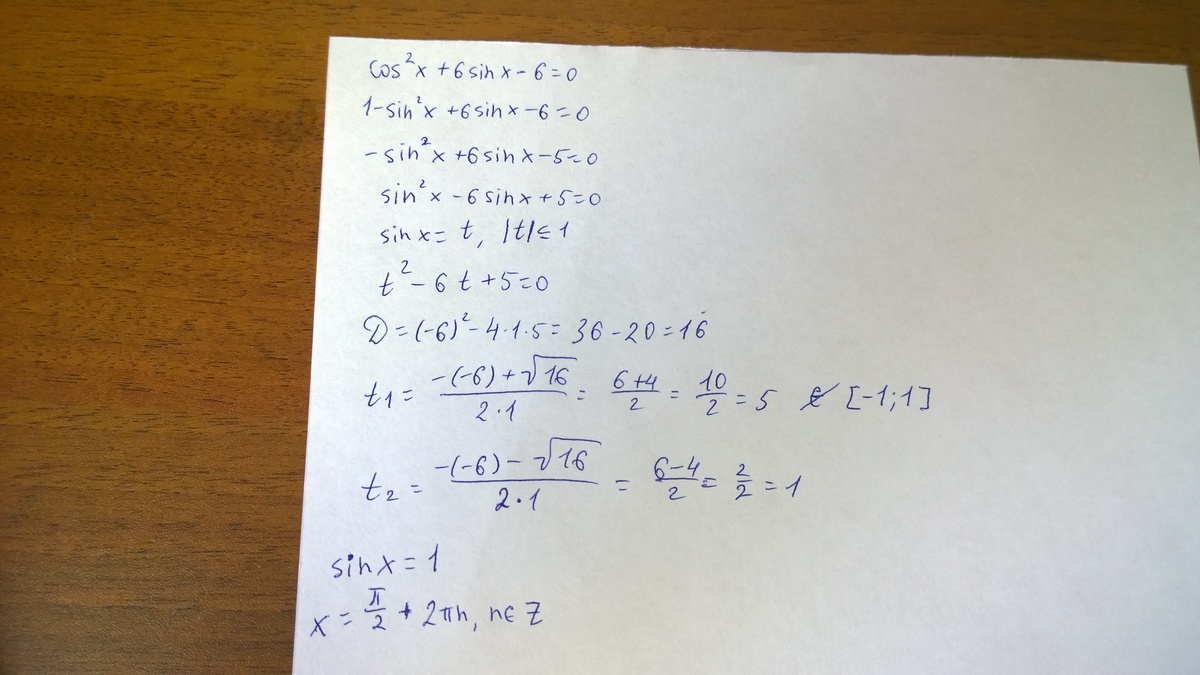 cos²x + 6 sin x - 6 = 0
1 - sin²x + 6 sin x - 6 = 0
- sin²x + 6 sin x - 5 = 0
sin²x - 6 sin x + 5 = 0
sin x = t, |t| ≤ 1
t² - 6t + 5 = 0
D = (-6)² - 4·1·5 = 36 - 20 = 16
t₁ = (-(-6) + √16)/(2·1) = (6+4)/2 = 10/2 = 5 ∉ [-1; 1]
t₂ = (-(-6) - √16)/(2·1) = (6-4)/2 = 2/2 = 1
sin x = 1
x = π/2 + 2πn, n ∈ Z